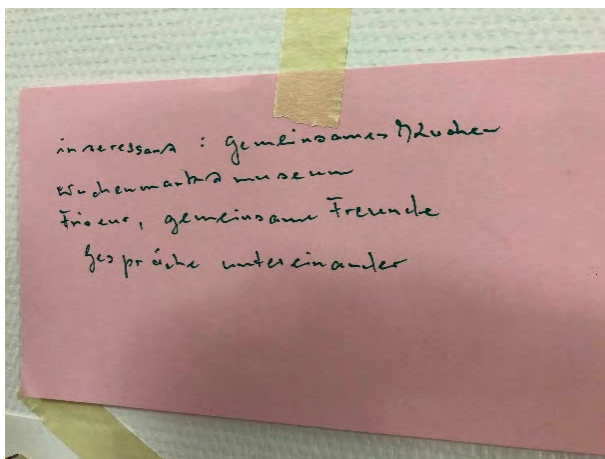 interessant : gemeinsames Kuchen
Wochenmarkt museum
Friseur, gemeinsame Freunde
Gespräche untereinander